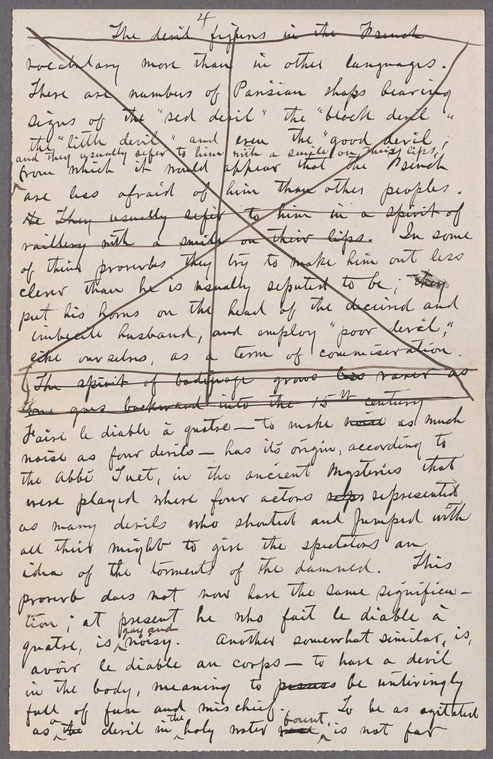 4
The devil figures in the French
vocabulary more than in other languages.
There are numbers of Parisian shops bearing
signs of the "red devil" the "black devil"
the "little devil" and even the "good devil,"
and they usually refer to him with a smile on their lips,
from which it would appear that the French
are less afraid of him than other peoples.
He They usually refer to him in a spirit of
raillery with a smile on their lips. In some
of their proverbs they try to make him out less
clever than he is usually reputed to be; they
put his horns on the head of the deceived and
imbecile husband, and employ "poor devil,"
like ourselves, as a term of commiseration.
The spirit of badinage grows less rarer as
one goes backward into the 15th century
Faire le diable à quatre — to make noise as much
noise as four devils — has its origin, according to
the Abbé Tuet, in the ancient Mysteries that
were played where four actors represented
as many devils who shouted and jumped with
all their might to give the spectators an
idea of the torments of the damned. This
proverb does not now have the same significa-
tion; at present he who fait le diable à
gay and
quatre, is noisy. Another somewhat similar, is,
avoir le diable au corps — to have a devil
in the body, meaning to possess be untiringly
full of fun and mischief. To be as agitated
as a the devil in the holy water fount, is not far